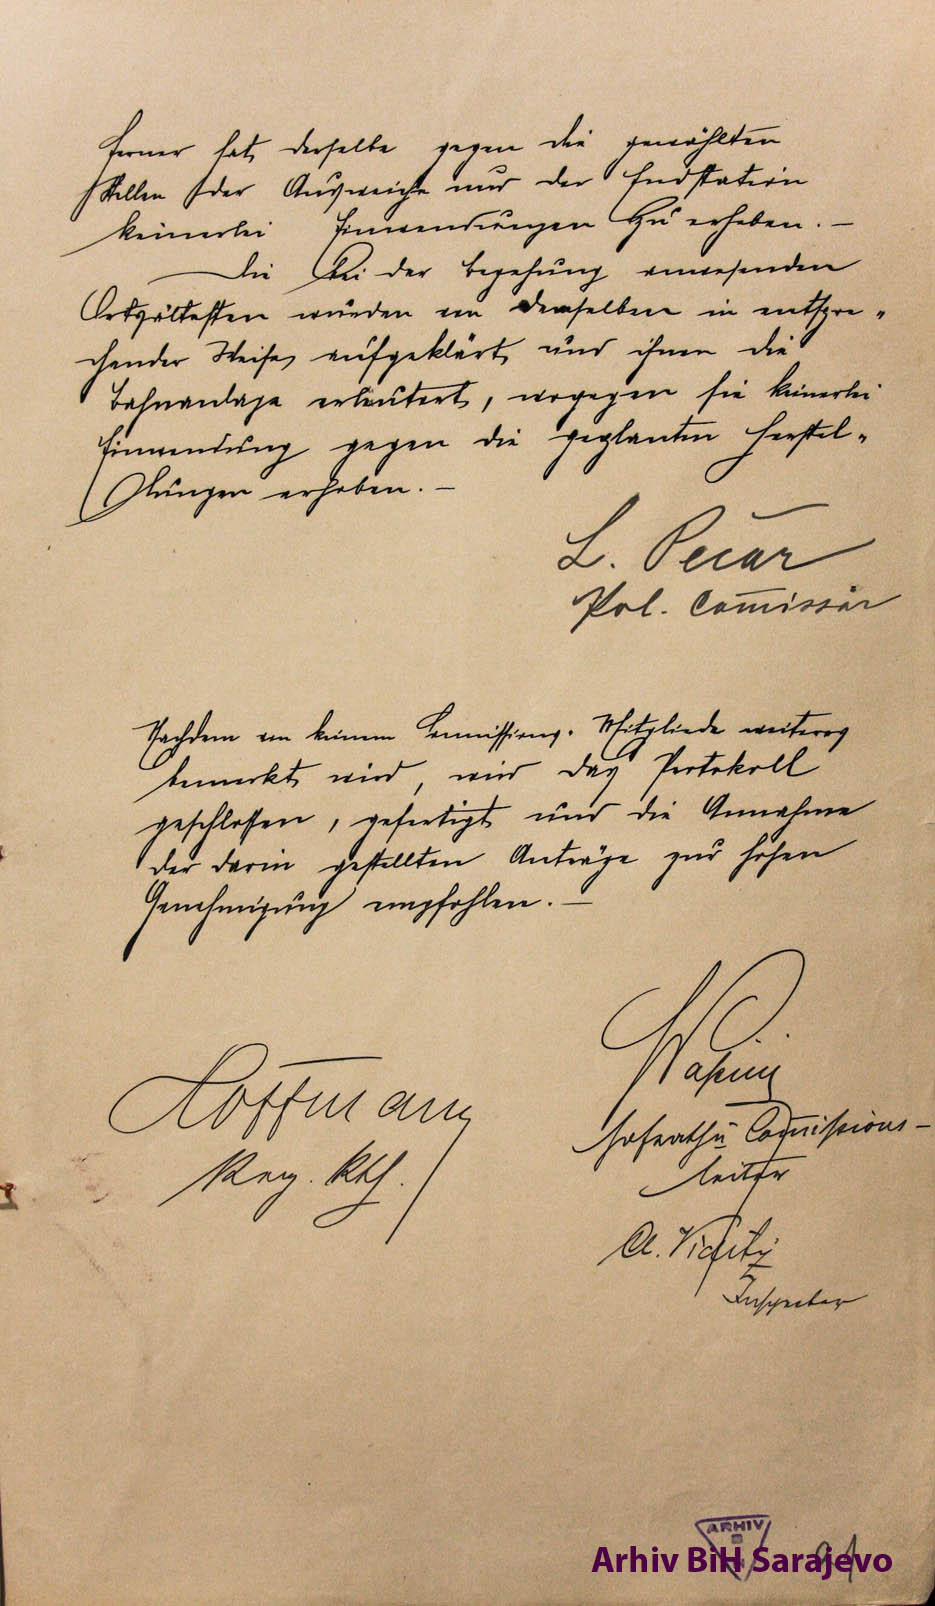 Ferner hat derselbe gegen die gewählten
Stellen der Ausweiche und der Endstation
keinerlei Einwendungen zu erheben. —
Die bei der Begehung anwesenden
Ortsältesten wurden von demselben in entspre-
chender Weise aufgeklärt und ihnen die
Bahnanlage erläutert, wogegen sie keinerlei
Einwendung gegen die geplanten Herstel-
lungen erhoben. —
L. Pečar
Pol. Commissär
Nachdem von keinem Commissions-Mitgliede weiteres
bemerkt wird, wird das Protokoll
geschlossen, gefertigt und die Annahme
der darin gestellten Anträge zur hohen
Genehmigung empfohlen. —
Hoffmann
Reg. Rth.
Hofrath u Commissions-
leiter
Inspector
ARHIV
Arhiv BiH Sarajevo